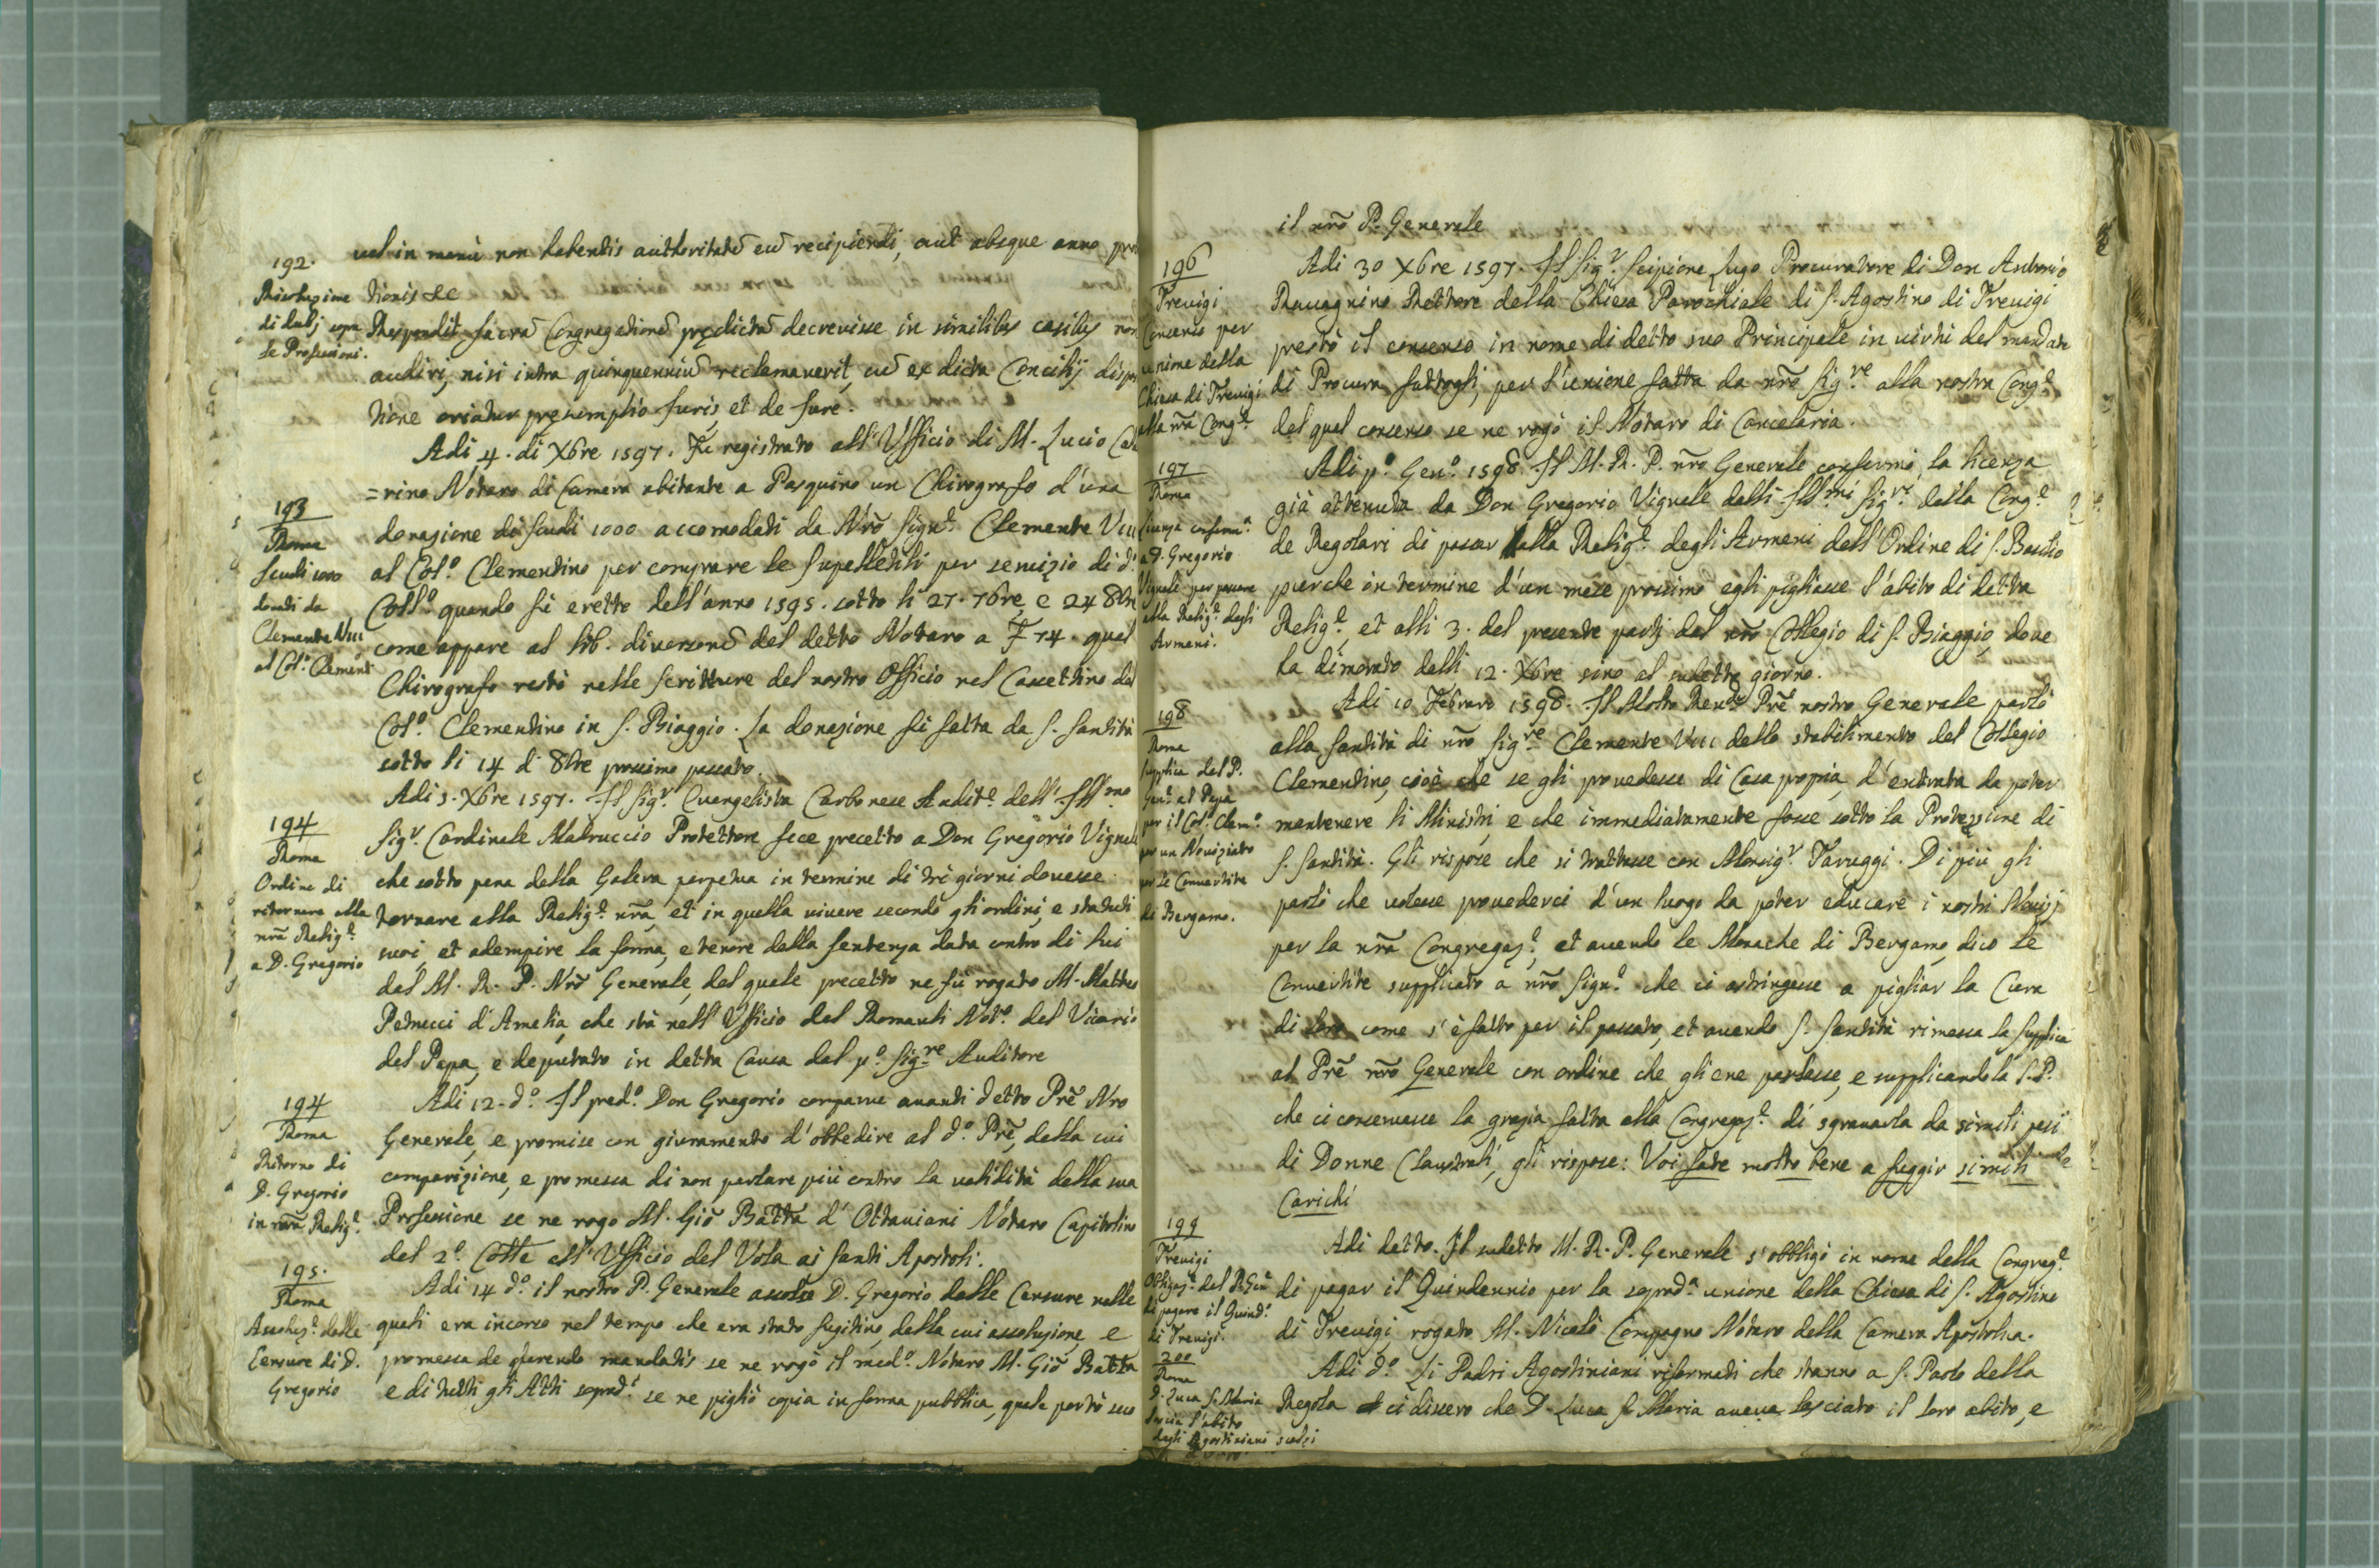 192.
Risoluzione
di dubj sopra
le Professioni.
vel in manù non habentis authoritatẽ eũ recipiendi, aut absque anno
tionis &c
Respondit Sacrã Congregationẽ prędictã decrevisse in similibus casibus non
audiri, nisi intra quinquenniũ reclamaverit, cũ ex dicta Concilij
tione oriatur pręsumptio Juris, et de Jure.
193
Roma
Scudi 1000
donati da
Clemente VIII
al Col.º Clement.
Adi 4. di Xbre 1597. Fu registrato all'Ufficio di M. Lucio
=rino Notaro di Camera abitante a Pasquino un Chirografo d'una
donazione di scudi 1000 accomodati da Nrõ Sign.e Clemente VIII
al Col.º Clementino per comprare le Supelletili per servizio di d.º
Coll.º quando fù eretto dell'anno 1595. sotto li 27. 7bre, e 24 8bre
come appare al lib. diversorũ del detto Notaro a F 74. qual
Chirografo restò nelle Scritture del nostro Officio nel Cassettino del
Col.º Clementino in S. Biaggio. La donazione fù fatta da S. Santità
sotto li 14 d' 8bre prossimo passato.
194
Roma
Ordine di
ritornare alla
nrã Relig.e
a D. Gregorio
Adi 5. Xbre 1597. Il Sig.r Evangelista Carbonese Audit.e dell'Ill.mo
Sig.r Cardinale Madruccio Protettore fece precetto a Don Gregorio Vignale
che sotto pena della Galera perpetua in termine di trè giorni dovesse
tornare alla Relig.e nrã, et in quella vivere secondo gli ordini, e statuti
suoi, et adempire la forma, e tenore della sentenza data contro di lui
dal M. R. P. Nrõ Generale, del quale precetto ne fù rogato M. Matteo
Petrucci d'Amelia, che stà nell'Ufficio del Romauli Not.º del Vicario
del Papa, e deputato in detta Causa dal p.º Sig.re Auditore
194
Roma
Ritorno di
D. Gregorio
in nrã Relig.e
Adi 12. d.º Il pred.º Don Gregorio comparve avanti detto Prẽ Nro
Generale, e promise con giuramento d'obbedire al d.º Prẽ, della cui
comparizione, e promessa di non parlare più contro la validità della sua
Professione se ne rogo M. Giõ Batta d'Ottaviani Notaro Capitolino
del 2.º Colle all'Ufficio del Vola ai Santi Apostoli.
195.
Roma
Assoluz.e dalle
Censure di D.
Gregorio
Adi 14 d.º il nostro P. Generale assolse D. Gregorio dalle Censure nelle
quali era incorso nel tempo che era stato fugitivo, della cui assoluzione, e
promessa de parendo mandatis se ne rogò il med.º Notaro M. Giõ Batta
e di tutti gli Atti sopradⁱ se ne pigliò copia in forma pubblica, quale portò seco
il nrõ P. Generale
196
Trevigi
Consenso per
unione della
Chiesa di Trevigi
alla nrã Cong.e
Adi 30 Xbre 1597. Il Sig.r Scipione Lugo Procuratore di Don Antonio
Ravagnino Rettore della Chiesa Parochiale di S. Agostino di Trevigi
prestò il consenso in nome di detto suo Principale in virtù del mandato
di Procura fattogli, per l'unione fatta da nrõ Sig.re alla nostra Cong.e
del qual consenso se ne rogò il Notaro di Cancelaria.
197
Roma
Licenza conferm.a
a D. Gregorio
Vignale per passare
alla Relig.e degli
Armeni.
Adi p.º Gen.º 1598. Il M. R. P. nrõ Generale confermò la licenza
già ottenuta da Don Gregorio Vignale dalli Ill.mi Sig.ri della Cong.e
de Regolari di passar alla Relig.e degli Armeni dell'Ordine di S. Basilio
purche in termine d'un mese prossimo egli pigliasse l'abito di detta
Relig.e, et alli 3. del presente partj dal nrõ Collegio di S. Biaggio, dove
ha dimorato dalli 12. Xbre sino al sudetto giorno.
198
Roma
Supplica del P.
Gen.e al Papa
per il Col.º Clem.º
per un Noviziato
per le Convertite
di Bergamo.
Adi 10 Febraro 1598. Il Molto Rev.do Prẽ nostro Generale parlò
alla Santità di nrõ Sig.re Clemente VIII dello stabilimento del Collegio
Clementino, cioè che se gli provedesse di Casa propria, d'entrata da poter
mantenere li Ministri, e che immediatamente fosse sotto la Protezzione di
S. Santità. Gli rispose che si trattasse con Monsig.r Taruggi. Di più gli
parlò che volesse provederci d'un luogo da poter educare i nostri Novizj
per la nrã Congregaz.e, et avendo le Monache di Bergamo, dico le
Convertite supplicato a nrõ Sign.e che ci astringesse a pigliar la Cura
di loro come s'è fatto per il passato, et avendo S. Santità rimessa la supplica
al Prẽ nrõ Generale con ordine che gli ene parlasse, e supplicandola S. P.
che ci conservasse la grazia fatta alla Congregaz.e di sgravarla da simili pesi
di Donne Claustrali, gli rispose: Voi fate molto bene a fuggir simili
Carichi
199
Trevigi
Obligaz.e del P. Gen.e
di pagare il Quind.º
di Trevigi.
Adi detto. Il sudetto M. R. P. Generale s'obbligò in nome della Congreg.e
di pagar il Quindennio per la soprad.a unione della Chiesa di S. Agostino
di Trevigi, rogato M. Nicolò Compagno Notaro della Camera Apostolica.
200
Roma
D. Luca S. Maria
lascia l'abito
degli Agostiniani scalzi
Adi d.º Li Padri Agostiniani riformati che stanno a S. Paolo della
Regola ci dissero che D. Luca S. Maria aveva lasciato il loro abito, e